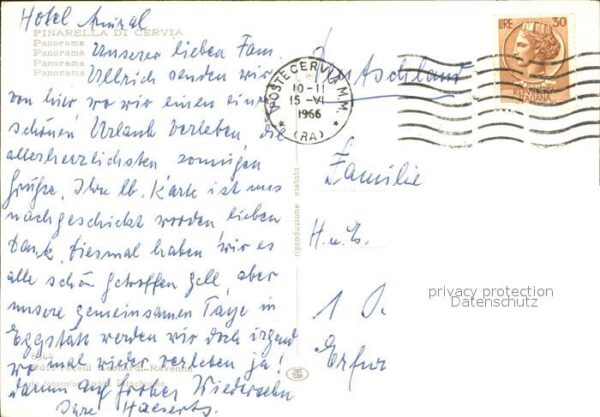 Hotel Amiral
PINARELLA DI CERVIA
Panorama
Panorama
Panorama
Panorama
Unserer lieben Fam.
Ullrich senden wir
von hier wo wir einen
schönen Urlaub verleben die
allerherzlichsten sonnigen
Grüße, Ihre lb. Karte ist uns
nachgeschickt worden, lieben
Dank, diesmal haben wir es
alle schön getroffen gell, aber
unsere gemeinsamen Tage in
Eggstätt werden wir doch irgend
wo mal wieder verleben ja!
darum auf frohes Wiedersehn
Ihre Haeserts.
POSTE CERVIA M.M.
10-11
15-VI
1966
(RA)
LIRE 30
ITALIANA
Deutschland
Familie
H. u. E.
1 O.
Erfur
riproduzione vietata
privacy protection
Datenschutz